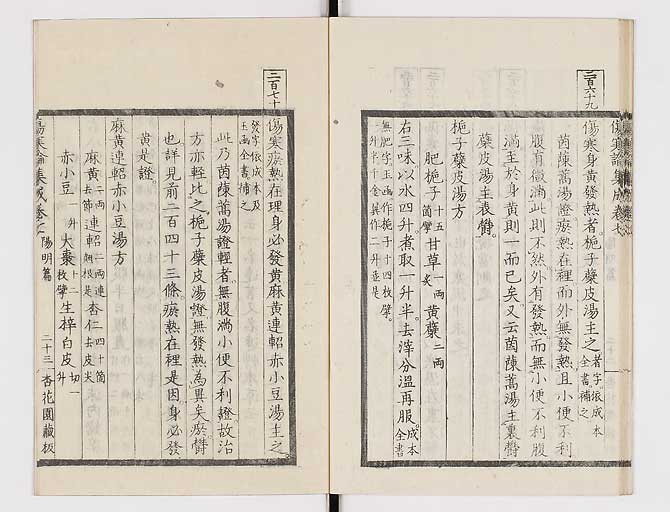 二百六十九
傷寒論集成卷七
傷寒身黄發熱者梔子蘗皮湯主之 者字依成本全書補之
茵陳蒿湯證瘀熱在裡而外無發熱且小便不利
腹有微滿此則不然外有發熱而無小便不利腹
滿主於身黄則一而已矣又云茵陳蒿湯主裏鬱
蘗皮湯主表鬱
梔子蘗皮湯方
肥梔子 十五箇擘 甘草 一兩炙 黄蘗 二兩
右三味以水四升煮取一升半去滓分温再服 成本全書
無肥字玉函作梔子十四枚擘
二升半千金翼作二升並是
二百七十
傷寒瘀熱在理身必發黄麻黄連軺赤小豆湯主之
發字依成本及
玉函全書補之
此乃茵陳蒿湯證輕者無腹滿小便不利證故治
方亦輕比之梔子蘗皮湯證無發熱為異矣瘀鬱
也詳見前二百四十三條瘀熱在裡是因身必發
黄是證
麻黄連軺赤小豆湯方
麻黄 二兩去節 連軺 二兩連翹根是 杏仁 四十箇去皮尖
赤小豆 一升 大棗 十二枚擘 生梓白皮 切一升
傷寒論集成卷七 陽明篇 二十三 杏花園藏板